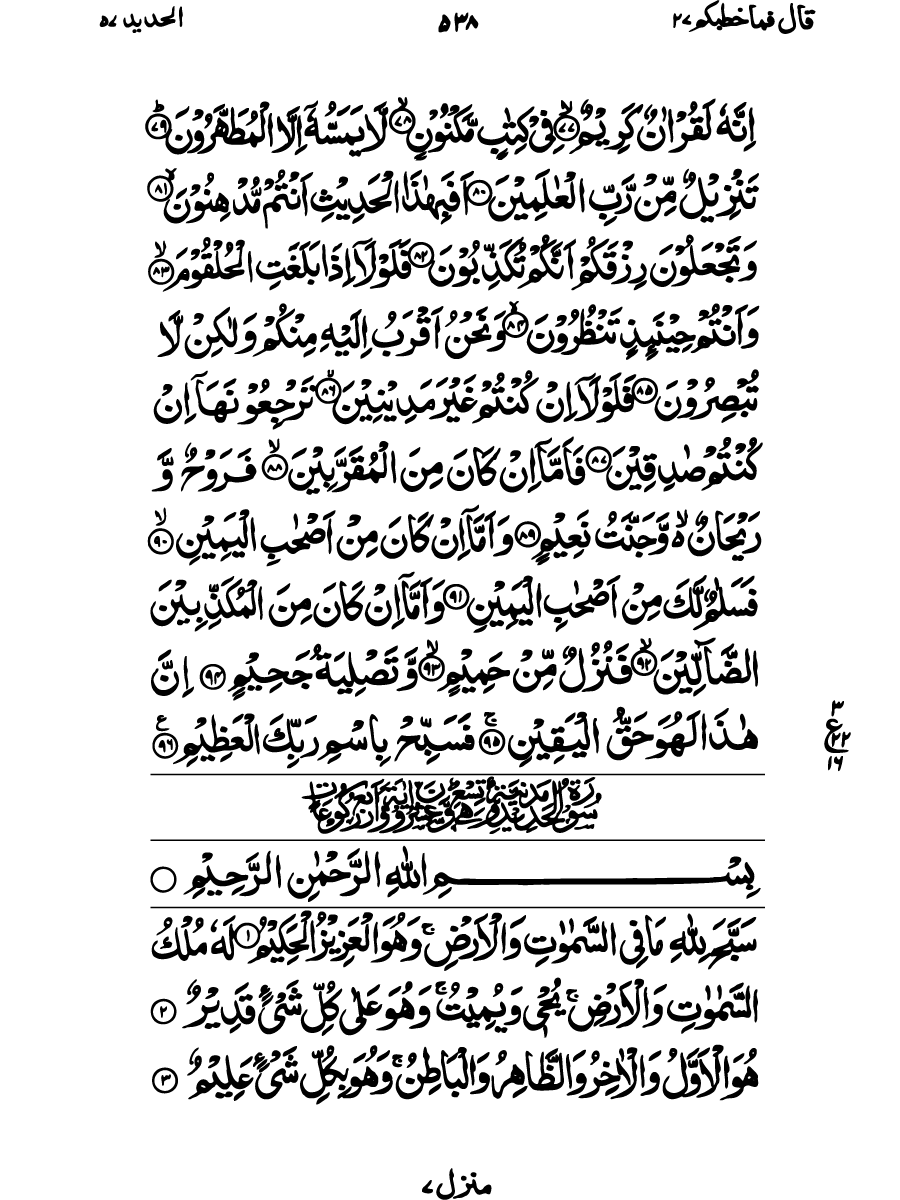 قال فما خطبكم ٢٧ ٥٣٨ الحديد ٥٧
اِنَّهٗ لَقُرْاٰنٌ كَرِيْمٌ ۙ﴿٧٧﴾ فِيْ كِتٰبٍ مَّكْنُوْنٍ ۙ﴿٧٨﴾ لَّا يَمَسُّهٗۤ اِلَّا الْمُطَهَّرُوْنَ ؕ﴿٧٩﴾
تَنْزِيْلٌ مِّنْ رَّبِّ الْعٰلَمِيْنَ ﴿٨٠﴾ اَفَبِهٰذَا الْحَدِيْثِ اَنْتُمْ مُّدْهِنُوْنَ ۙ﴿٨١﴾
وَ تَجْعَلُوْنَ رِزْقَكُمْ اَنَّكُمْ تُكَذِّبُوْنَ ﴿٨٢﴾ فَلَوْلَاۤ اِذَا بَلَغَتِ الْحُلْقُوْمَ ۙ﴿٨٣﴾
وَ اَنْتُمْ حِيْنَىِٕذٍ تَنْظُرُوْنَ ۙ﴿٨٤﴾ وَ نَحْنُ اَقْرَبُ اِلَيْهِ مِنْكُمْ وَ لٰكِنْ لَّا
تُبْصِرُوْنَ ﴿٨٥﴾ فَلَوْلَاۤ اِنْ كُنْتُمْ غَيْرَ مَدِيْنِيْنَ ۙ﴿٨٦﴾ تَرْجِعُوْنَهَاۤ اِنْ
كُنْتُمْ صٰدِقِيْنَ ﴿٨٧﴾ فَاَمَّاۤ اِنْ كَانَ مِنَ الْمُقَرَّبِيْنَ ۙ﴿٨٨﴾ فَرَوْحٌ وَّ
رَيْحَانٌ ۙ۬ وَّ جَنَّتُ نَعِيْمٍ ﴿٨٩﴾ وَ اَمَّاۤ اِنْ كَانَ مِنْ اَصْحٰبِ الْيَمِيْنِ ۙ﴿٩٠﴾
فَسَلٰمٌ لَّكَ مِنْ اَصْحٰبِ الْيَمِيْنِ ﴿٩١﴾ وَ اَمَّاۤ اِنْ كَانَ مِنَ الْمُكَذِّبِيْنَ
الضَّآلِّيْنَ ۙ﴿٩٢﴾ فَنُزُلٌ مِّنْ حَمِيْمٍ ۙ﴿٩٣﴾ وَّ تَصْلِيَةُ جَحِيْمٍ ﴿٩٤﴾ اِنَّ
هٰذَا لَهُوَ حَقُّ الْيَقِيْنِ ۚ﴿٩٥﴾ فَسَبِّحْ بِاسْمِ رَبِّكَ الْعَظِيْمِ ﴿٩٦﴾ ع
٣ ع ٢٢ ١٦
بِسْمِ اللّٰهِ الرَّحْمٰنِ الرَّحِيْمِ
سَبَّحَ لِلّٰهِ مَا فِي السَّمٰوٰتِ وَ الْاَرْضِ ۚ وَ هُوَ الْعَزِيْزُ الْحَكِيْمُ ﴿١﴾ لَهٗ مُلْكُ
السَّمٰوٰتِ وَ الْاَرْضِ ۚ يُحْيٖ وَ يُمِيْتُ ۚ وَ هُوَ عَلٰى كُلِّ شَيْءٍ قَدِيْرٌ ﴿٢﴾
هُوَ الْاَوَّلُ وَ الْاٰخِرُ وَ الظَّاهِرُ وَ الْبَاطِنُ ۚ وَ هُوَ بِكُلِّ شَيْءٍ عَلِيْمٌ ﴿٣﴾
منزل ٧